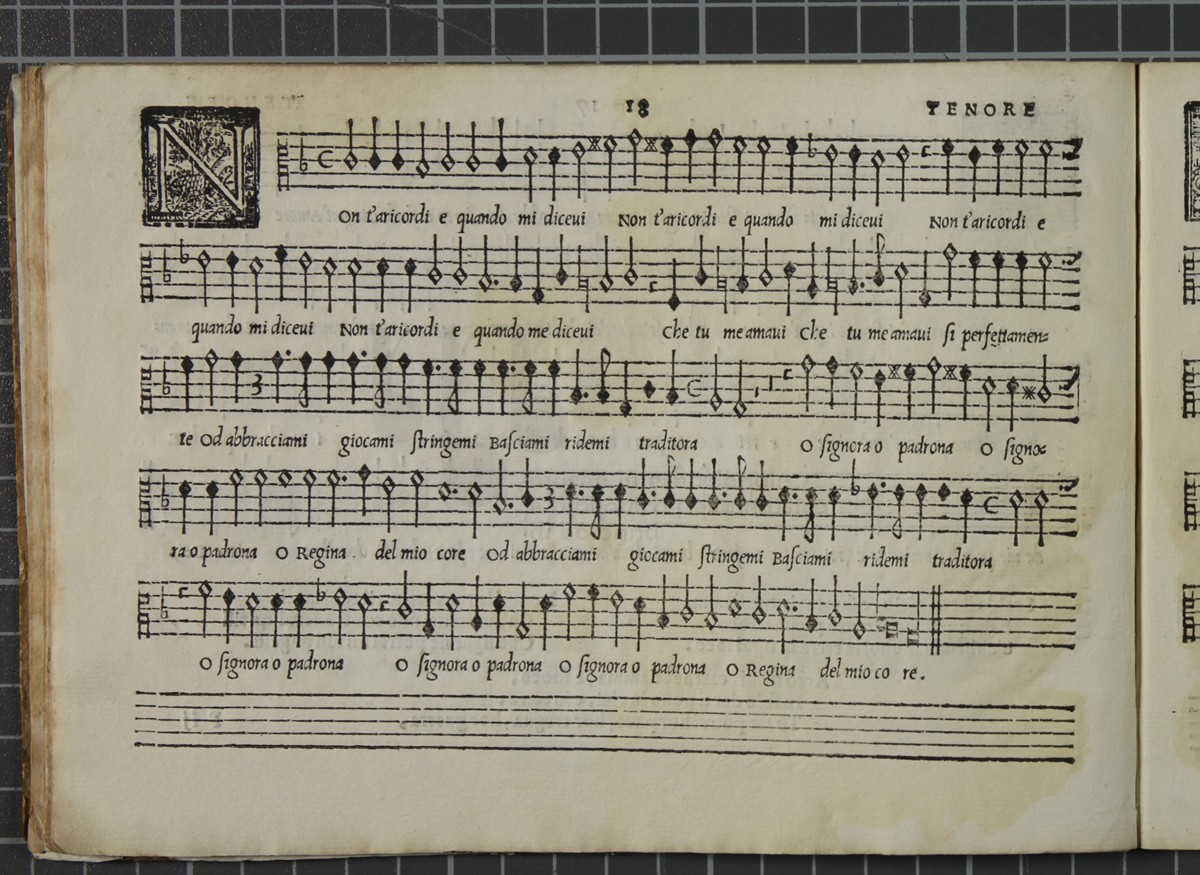 18 TENORE
NOn t'aricordi e quando mi diceui Non t'aricordi e quando mi diceui Non t'aricordi e
quando mi diceui Non t'aricordi e quando me diceui Che tu me amaui Che tu me amaui si perfettamen=
te Od abbracciami giocami stringemi Basciami ridemi traditora O signora o padrona O signo=
ra o padrona O Regina del mio core Od abbracciami giocami stringemi Basciami ridemi traditora
O signora o padrona O signora o padrona O signora o padrona O Regina del mio co re.